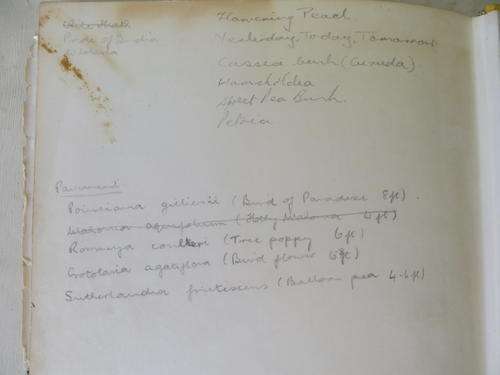 Flowering Peach
Pride of India
Yesterday, Today, Tomorrow
Cassia bush
Sweet Pea Bush.
Petrea
Pavement.
Poinciana gilliesii (Bird of Paradise 8ft)
Mahonia aquifolium (Holly Mahonia 4ft)
Romneya coulteri (Tree poppy 6ft)
Crotolaria agatiflora (Bird flower 6ft)
Sutherlandia frutescens (Balloon pea 4-6ft)